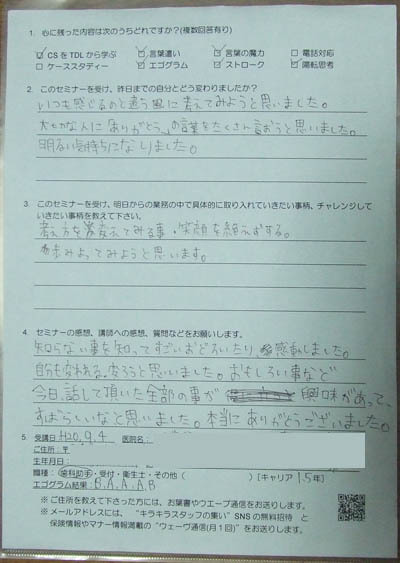 1. 心に残った内容は次のうちどれですか？(複数回答有り)
☑ CSをTDLから学ぶ ☑ 言葉遣い ☑ 言葉の魔力 □ 電話対応
□ ケーススタディー ☑ エゴグラム ☑ ストローク ☑ 陽転思考
2. このセミナーを受け、昨日までの自分とどう変わりましたか？
いつも感じるのと違う風に考えてみようと思いました。
大切な人に「ありがとう」の言葉をたくさん言おうと思いました。
明るい気持ちになりました。
3. このセミナーを受け、明日からの業務の中で具体的に取り入れていきたい事柄、チャレンジして
いきたい事柄を教えて下さい。
考え方を変えてみる事・笑顔を絶えずする。
歩みよってみようと思います。
4. セミナーの感想、講師への感想、質問などをお願いします。
知らない事を知ってすごいおどろいたり 感動しました。
自分も変われる、変ろうと思いました。おもしろい事など
今日、話して頂いた全部の事が 興味があって、
すばらしいなと思いました。本当にありがとうございました。
5. 受講日 H20.9.4 医院名：
ご住所：〒
生年月日：
職種：歯科助手・受付・衛生士・その他（ ）[キャリア 1.5年]
エゴグラム結果：B.A.A.A.B
※ご住所を教えて下さった方には、お葉書やウエーブ通信をお送りします。
※メールアドレスには、“キラキラスタッフの集い”SNSの無料招待 と
保険情報やマナー情報満載の“ウェーヴ通信(月1回)”をお送りします。